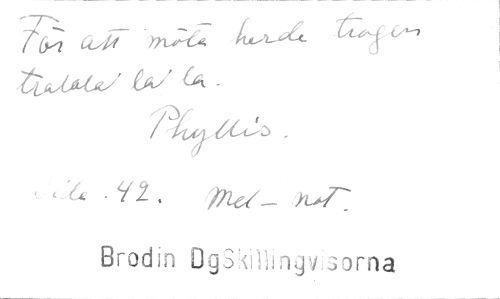 För att möta herde trogen
tralala' la' la.
Phyllis.
Sida 42. Mel – not.
Brodin DgSkillingvisorna